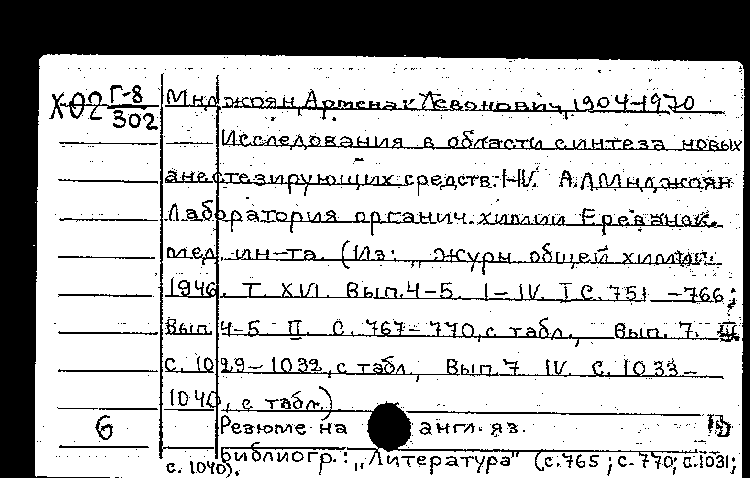 Х02 Г-8/302 Мнджоян, Арменак Левонович, 1904-1970
Исследования в области синтеза новых
анестезирующих средств. I-IV. А.Л.Мнджоян
Лаборатория органич. химии Ереванск.
мед. ин-та. (Из: „журн. общей химии.
1946. Т. XVI. Вып.4-5. I-IV. I С. 751 -766;
Вып. 4-5 II. С. 767-770, с табл., Вып. 7. III.
с. 1029-1032, с табл., Вып. 7 IV. С. 1033-
1040, с табл.)
6 Резюме на англ. яз.
библиогр.: „Литература" (с.765; с.770; с.1031;
с. 1040).